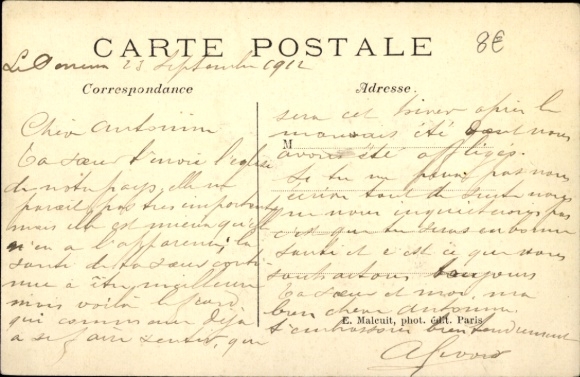 CARTE POSTALE
8€
23 Septembre 1912
Correspondance
Adresse
Cher Antonin
Ta sœur t'envoie l'église
de notre pays, elle ne
parait pas très importante
mais elle est mieux qu'elle
n'en a l'apparence, la
santé de ta sœur conti
nue à être meilleure
mais voilà le froid
qui commence déjà
a se faire sentir, que
sera cet hiver après le
mauvais été dont nous
M
avons été affligés.
Si tu ne peux pas nous
écrire tout de suite nous
ne nous inquièterons pas
c'est que tu seras en bonne
santé et c'est ce que nous
souhaitons toujours
Ta sœur et moi, mon
bien cher Antonin
t'embrassons bien tendrement
E. Malcuit, phot. édit. Paris